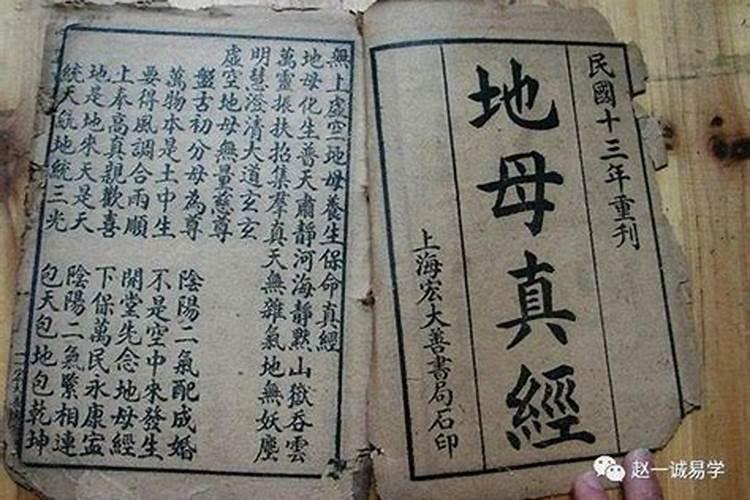 民國十三年重刊
地母真經
上海宏大善書局石印
無上虛空地母養生保命真經
地母化生普天肅靜河海靜默山嶽吞雲
萬靈振扶招集羣真天無雜氣地無妖塵
明慧澄清大道玄玄
虛空地母無量慈尊
盤古初分母為尊 陰陽二氣配成婚
萬物本是土中生 不是空中來發生
要得風調合雨順 開堂先念地母經
上奉高真親歡喜 下保萬民永康寍
地是地來天是天 陰陽二氣緊相連
統天統地統三光 包天包地包乾坤
赵一诚易学